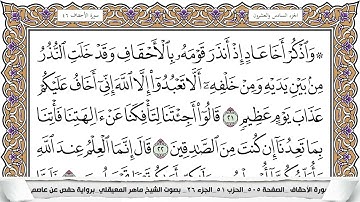 الجزء السادس والعشرون
سورة الأحقاف ٤٦
۞ وَاذْكُرْ أَخَا عَادٍ إِذْ أَنذَرَ قَوْمَهُ بِالْأَحْقَافِ وَقَدْ خَلَتِ النُّذُرُ
مِن بَيْنِ يَدَيْهِ وَمِنْ خَلْفِهِ أَلَّا تَعْبُدُوا إِلَّا اللَّهَ إِنِّي أَخَافُ عَلَيْكُمْ
عَذَابَ يَوْمٍ عَظِيمٍ ٢١ قَالُوا أَجِئْتَنَا لِتَأْفِكَنَا عَنْ ءَالِهَتِنَا فَأْتِنَا
بِمَا تَعِدُنَا إِن كُنتَ مِنَ الصَّادِقِينَ ٢٢ قَالَ إِنَّمَا الْعِلْمُ عِندَ اللَّهِ
سورة الأحقاف _ الصفحة ٥٠٥ _ الحزب ٥١ _ الجزء ٢٦ _ بصوت الشيخ ماهر المعيقلي _ برواية حفص عن عاصم